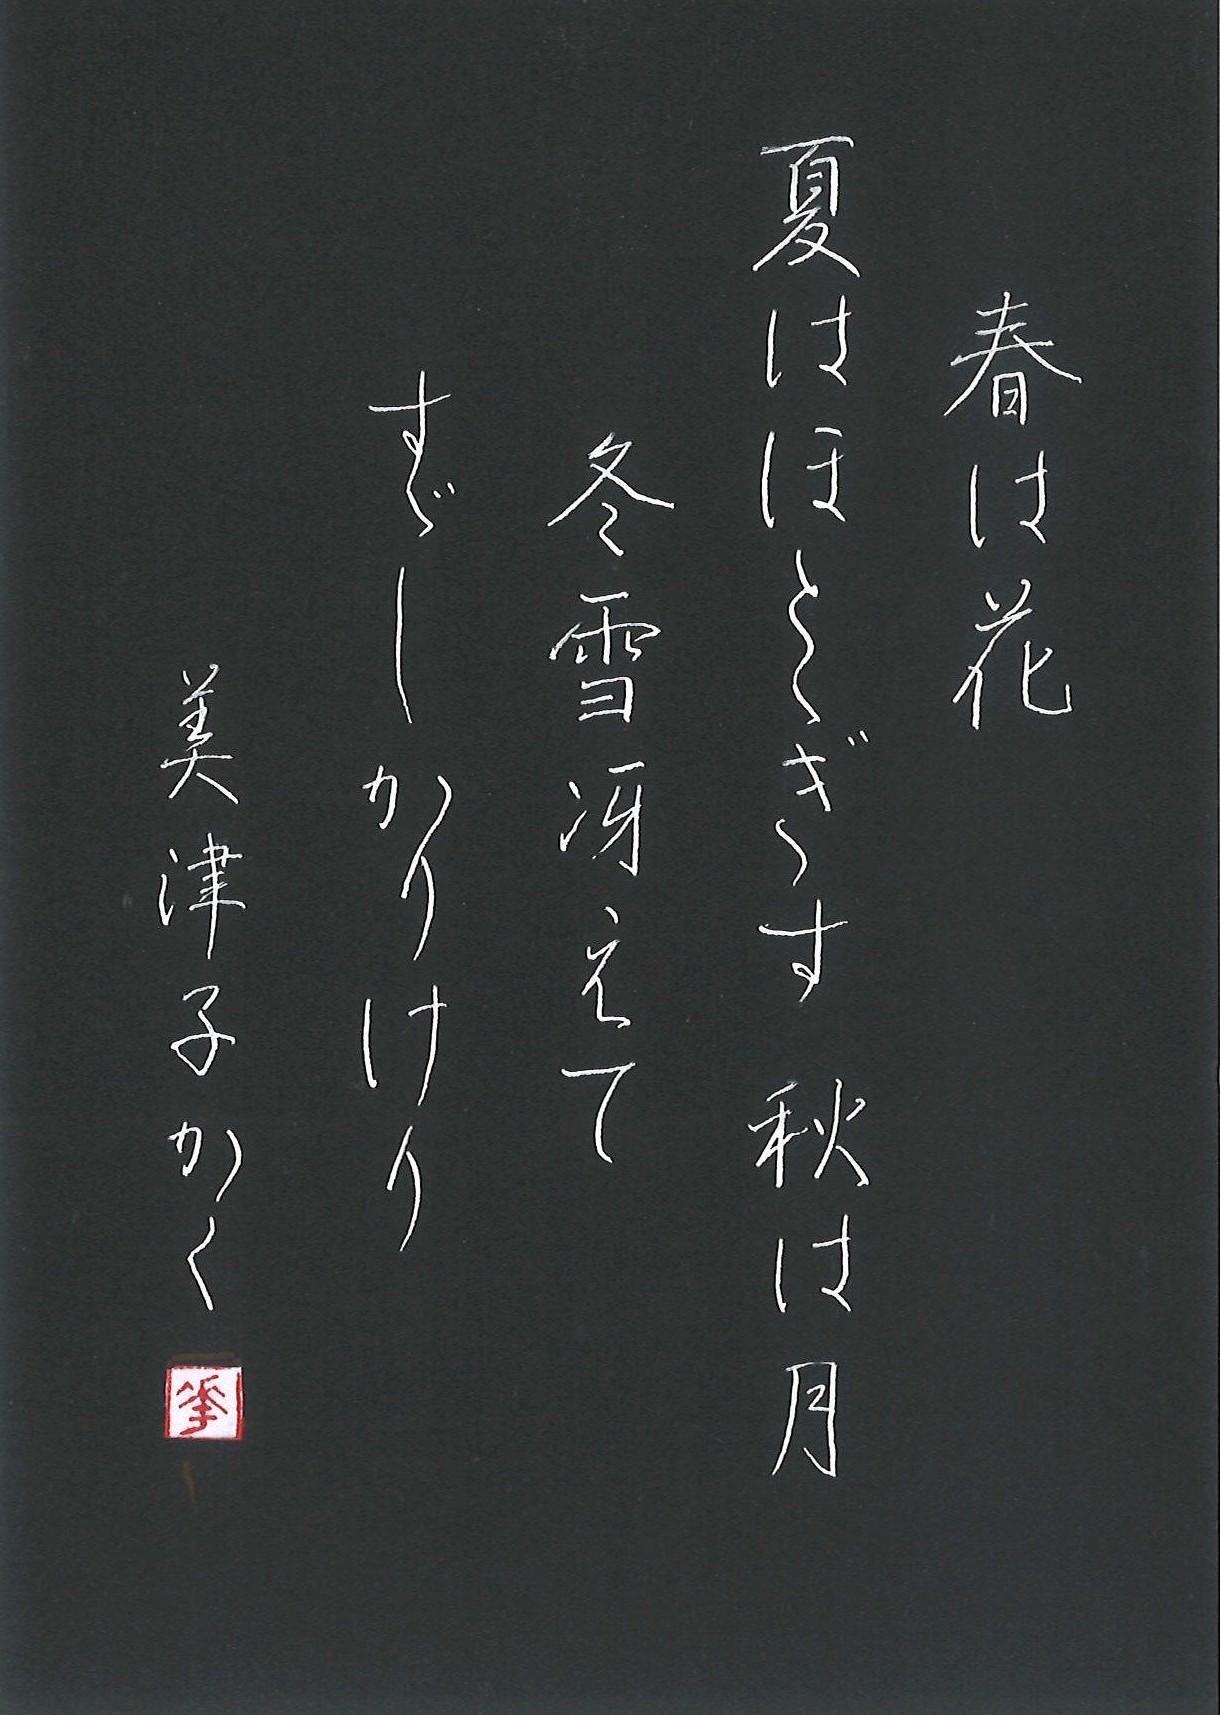 春は花
夏はほとゝぎゝす 秋は月
冬雪冴えて
すゞしかりけり
美津子かく